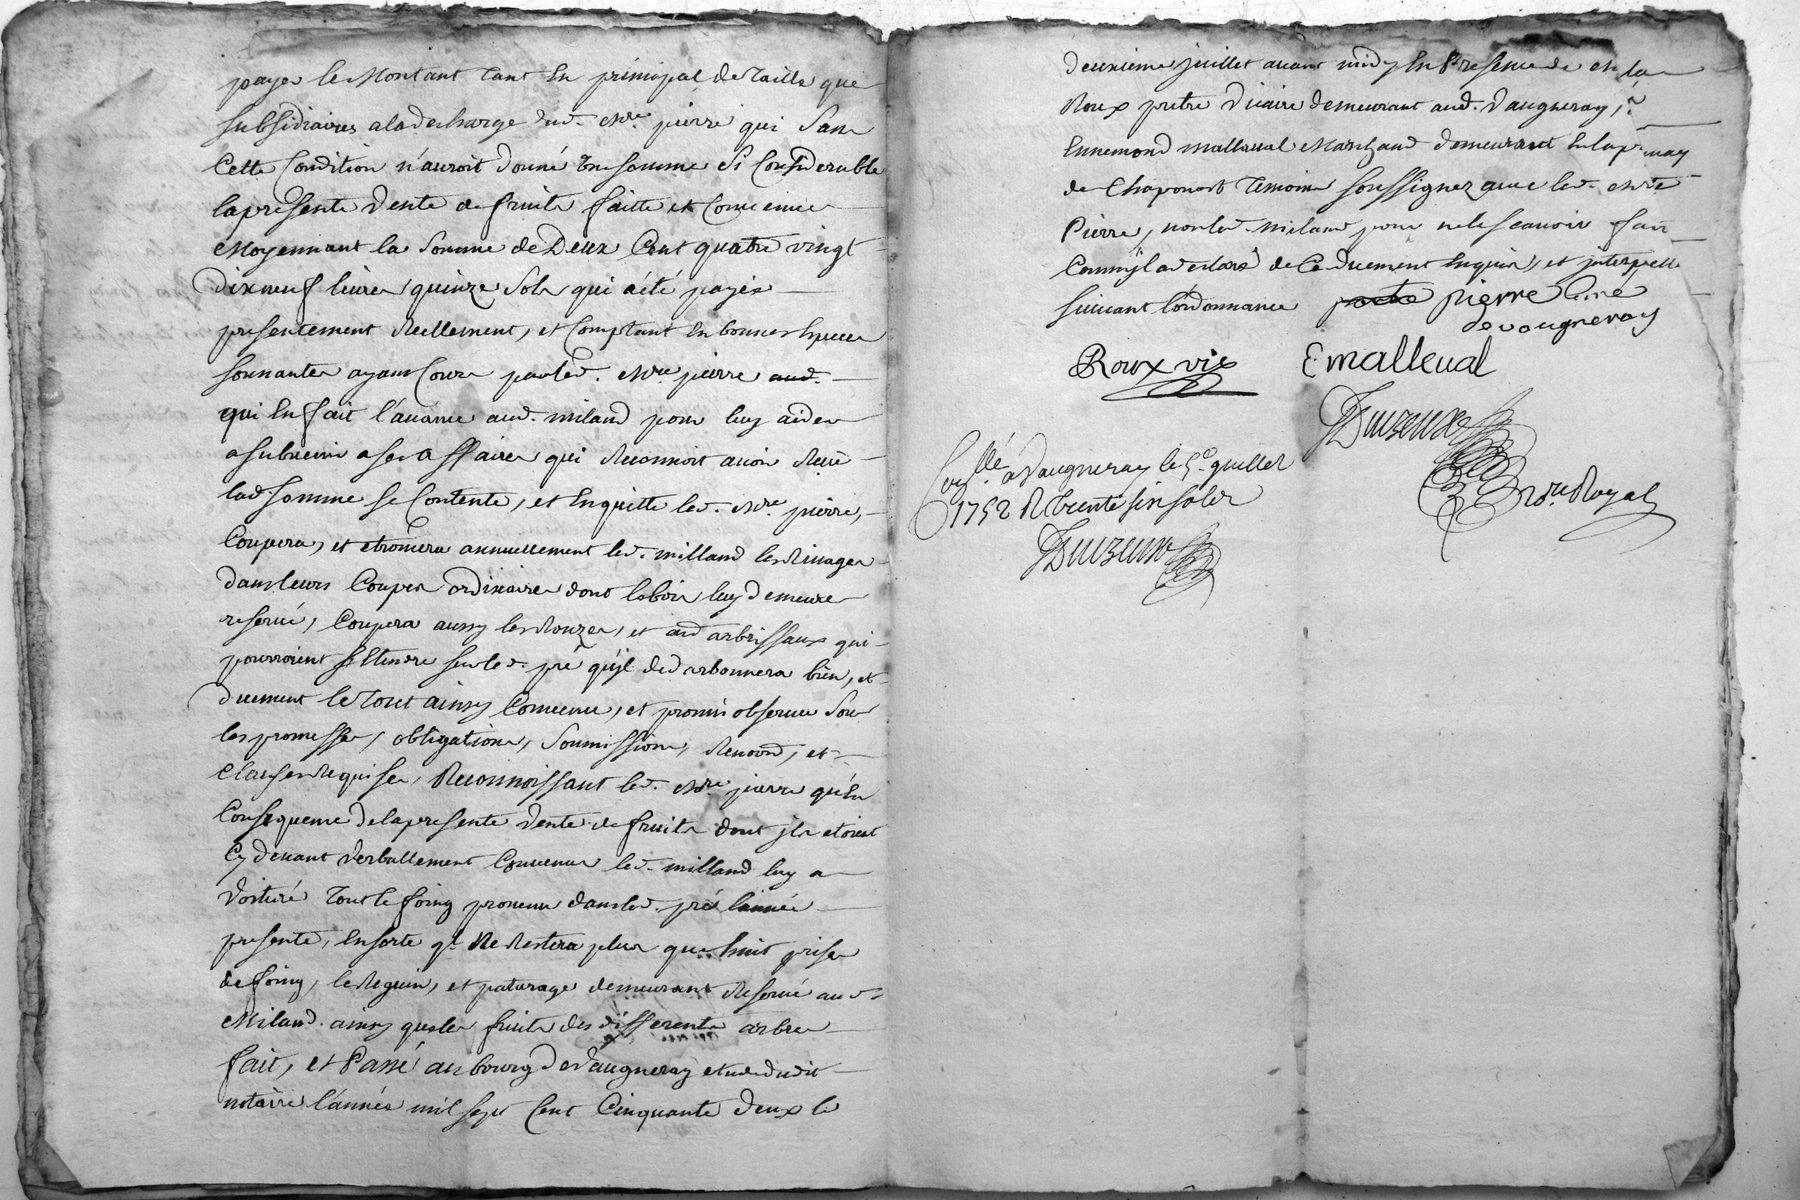 payer le Montant tant En principal de Taille que
subsidiaires a la decharge dud. Mre. pierre qui Sans
Cette Condition n'auroit donné Une somme Si Considerable
la presente Vente de fruits faitte et Convenue
Moyennant la Somme de Deux Cent quatre vingt
Dix neuf livres quinze Sols qui a été payée
presentement Reellement, et Comptant En bonnes Especes
sonnantes ayant Cours par led. Mre. pierre aud.
qui En fait l'avance aud. miland pour luy aider
a subvenir a ses affaires qui Reconnoit avoir Receu
lad somme se Contente, et En quitte led. Mre. pierre,
Coupera, et annuellement led. milland les Rivages
dans leurs Coupes ordinaires dont le bois luy demeure
reservé, Coupera aussy les Ronzes, et arbrissaux qui
pourroient s'Etendre sur led. pré qu'jl bien, et
duement le tout ainsy Convenu, et promis observer Sous
les promesses, obligations, Soumissions, Renond, et
Clauses Requises, Reconnoissant led. Mre. pierre qu'En
Consequence de la presente Vente de fruits dont jls etoient
Cy devant Verballement Convenus led. milland luy a
Voituré Tout le foing provenu dans led. pré l'année
presente, En sorte ql. Ne Restera plus que huit prises
de foing, le Reguin, et paturage demeurant Reservé aud.
Miland. ainsy que les fruits des differents arbres
fait, et Passé au bourg de Vaugneray etude dudit
notaire l'année mil sept Cent Cinquante deux le
deuxieme juillet avant midy En Presence de
Roux pretre Vicaire demeurant aud. Vaugneray,
Ennemond malleval Marchand demeurant En la
de Chaponost Temoins soussignez avec led. Mre
Pierre, non led. Miland pour ne le scavoir faire
Comm'jl a declaré de Ce duement Enquis, et jnterpellé
suivant l'ordonnance pierre Curé
de vaugneray
Roux vic E malleval
Nore. Royal
Collé. à Vaugneray le 5e. juillet
1752 R Trente six sols